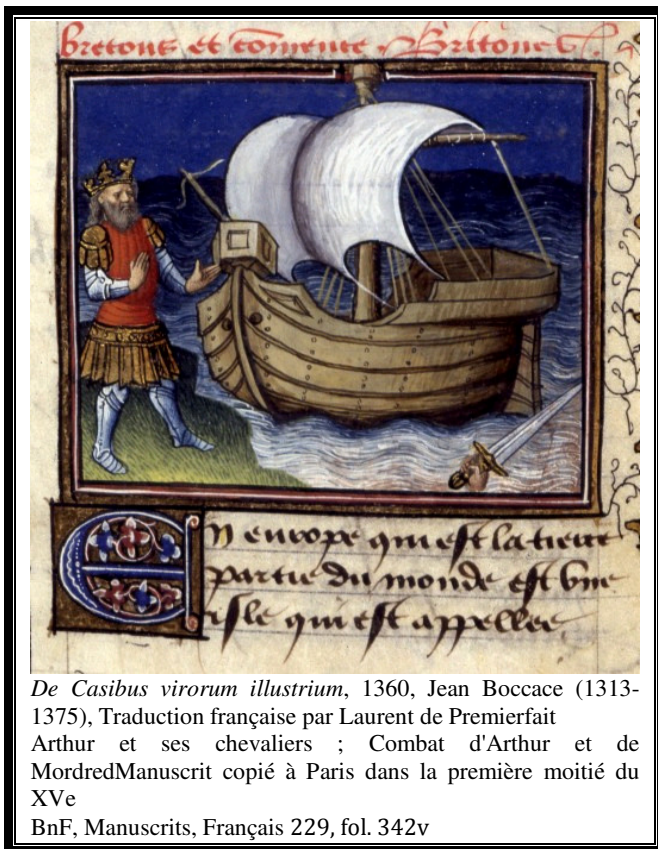 bretons et comente Britons
En europe qui est la tierce
partie du monde est vne
isle qui est appellee
De Casibus virorum illustrium, 1360, Jean Boccace (1313-
1375), Traduction française par Laurent de Premierfait
Arthur et ses chevaliers ; Combat d'Arthur et de
MordredManuscrit copié à Paris dans la première moitié du
XVe
BnF, Manuscrits, Français 229, fol. 342v